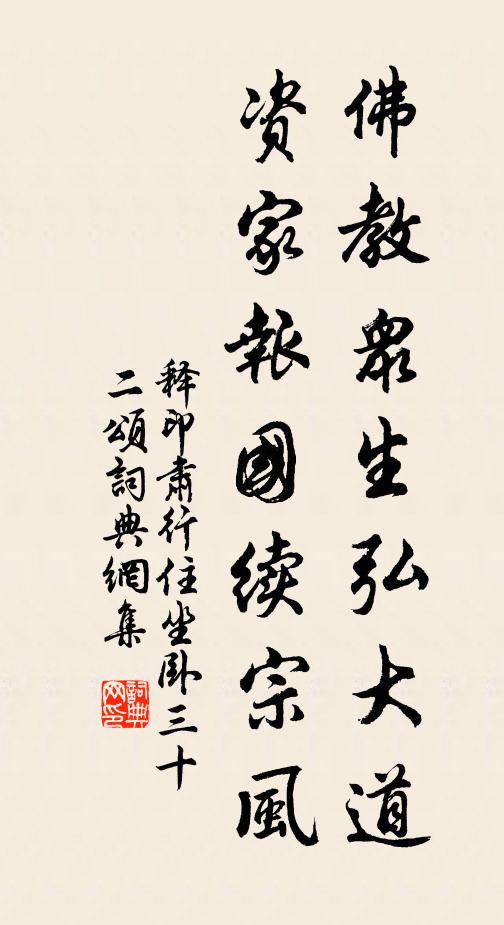 佛教眾生弘大道
资家報國续宗風
释印肅行住坐卧三十
二頌詞典網集
詞典网印